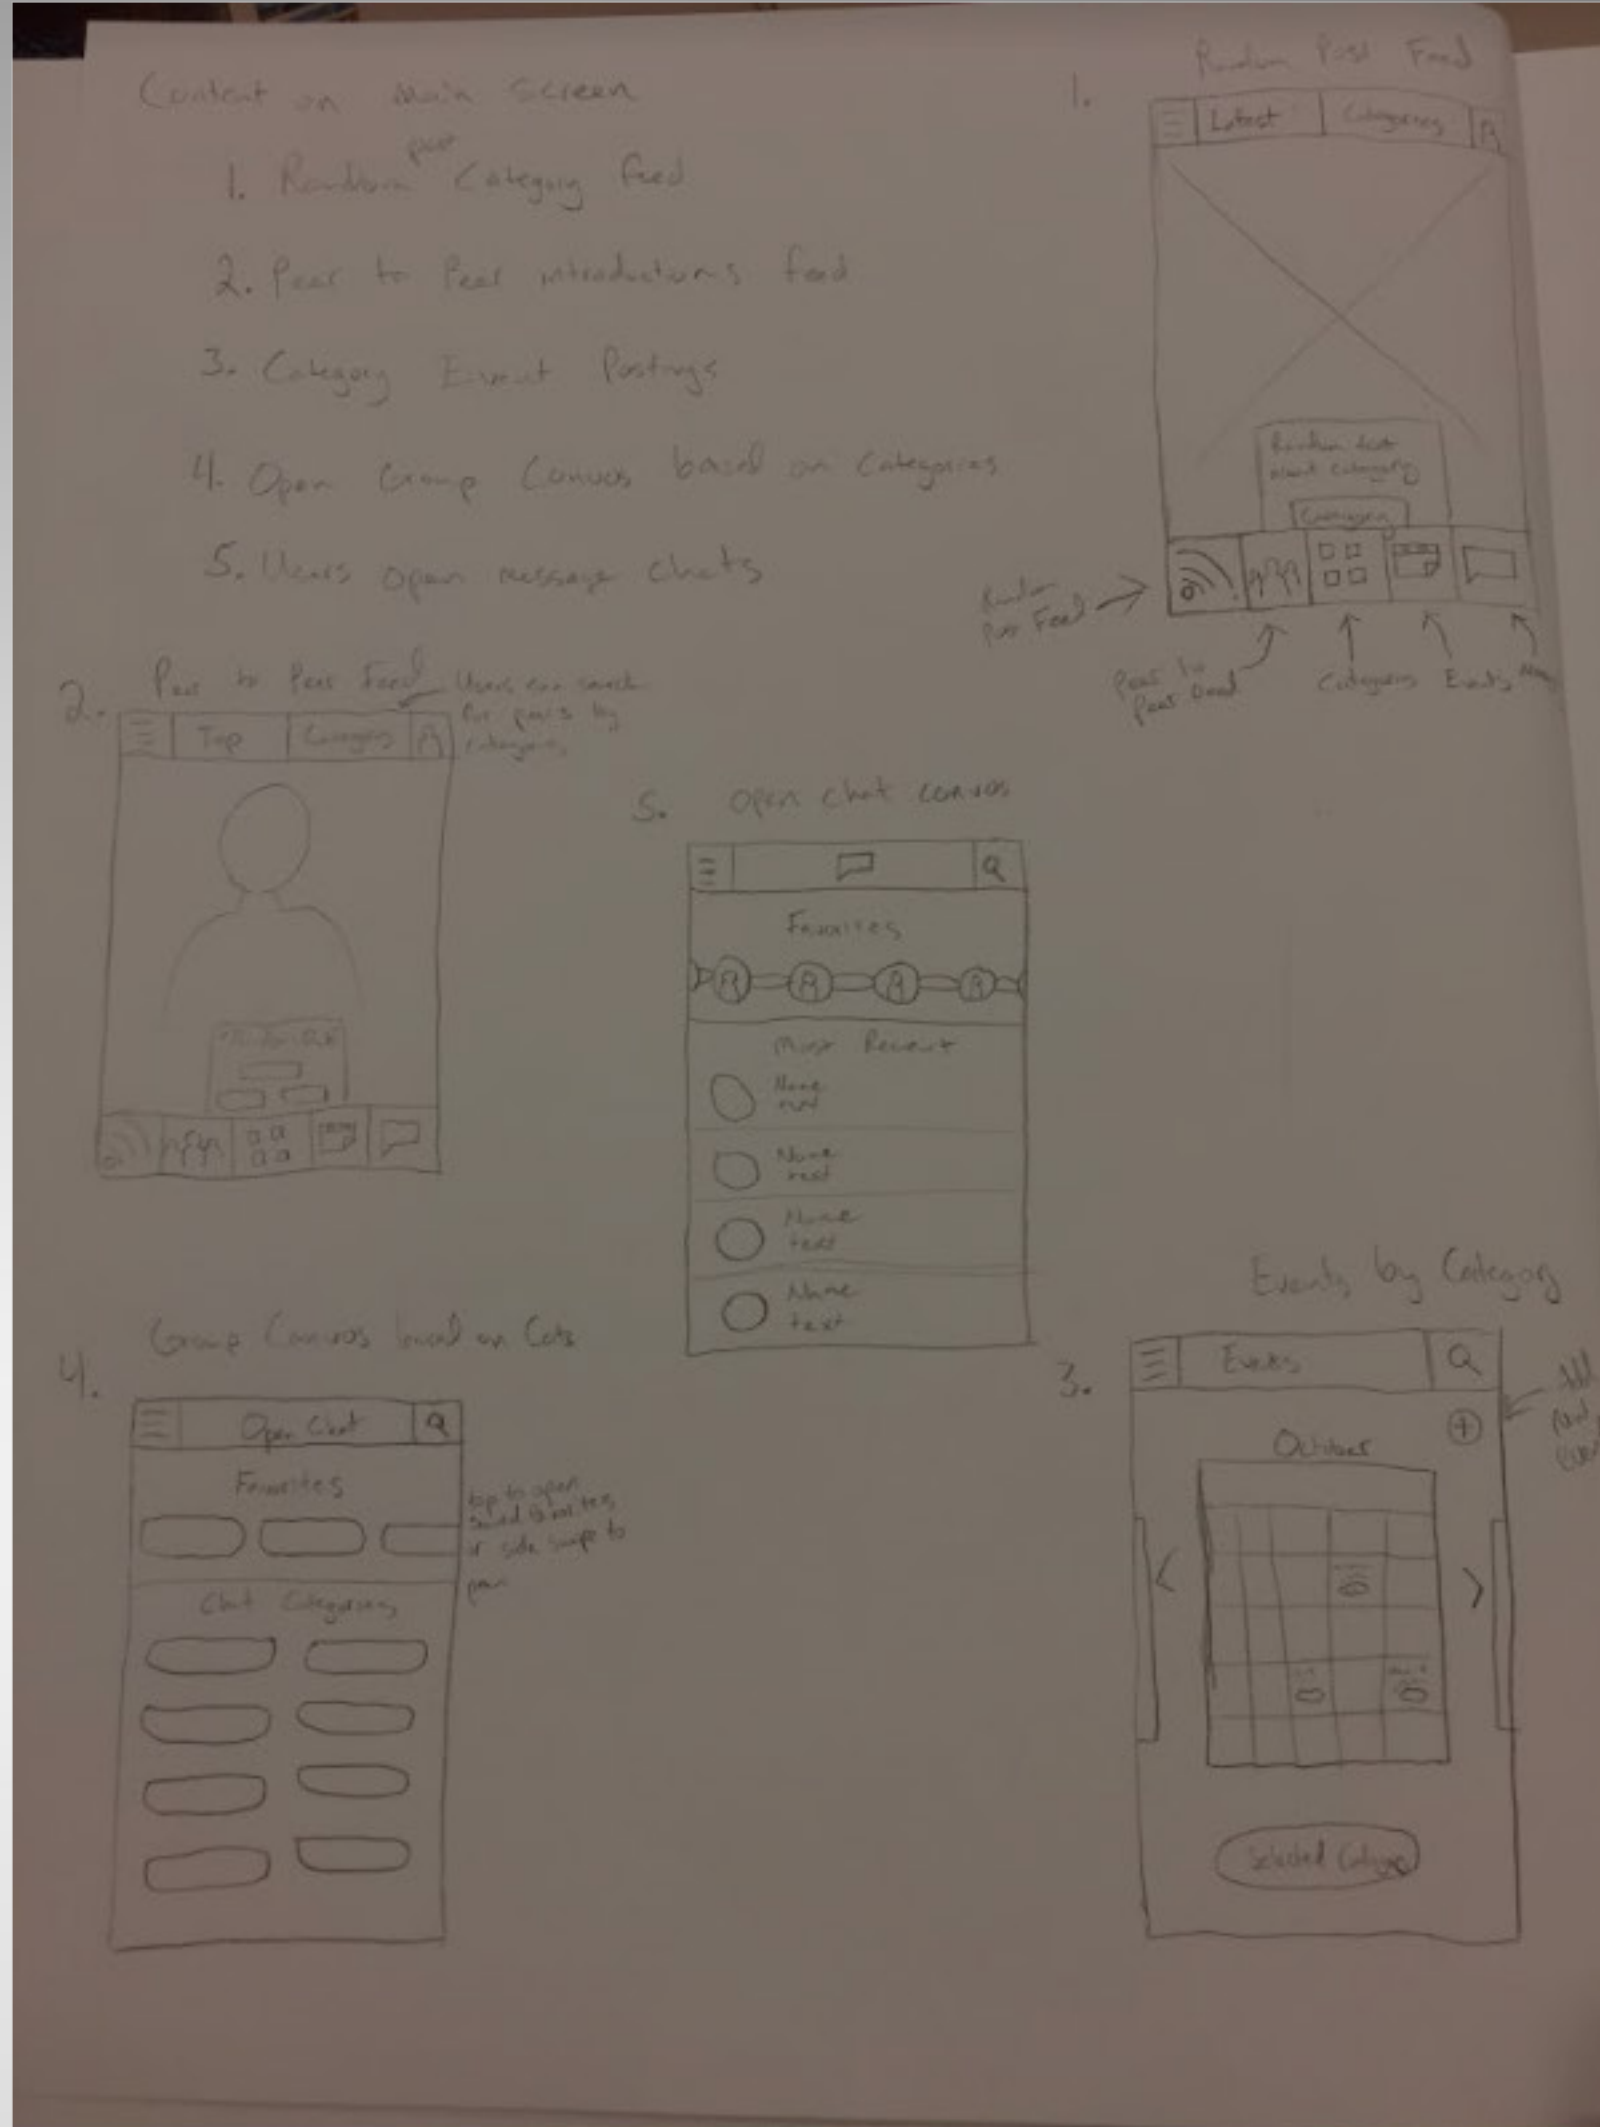 Content on Main Screen
1. Random post Category feed
2. Peer to Peer introductions feed
3. Category Event Postings
4. Open Group Canvas based on Categories
5. Users open message chats
1. Random Post Feed
Latest
Categories
Random text
about category
Category
Random
Post Feed
Peer to
Peer Feed
Categories
Events
2. Peer to Peer Feed
Users can search
for peers by
category
Top
Categories
5. Open Chat Canvas
Favorites
Most Recent
Name
text
Name
text
Name
text
Name
text
4. Group Canvas based on Cats
Open Chat
Favorites
tap to open
or side swipe to
Chat Categories
Events by Category
3.
Events
Add
October
Selected Category